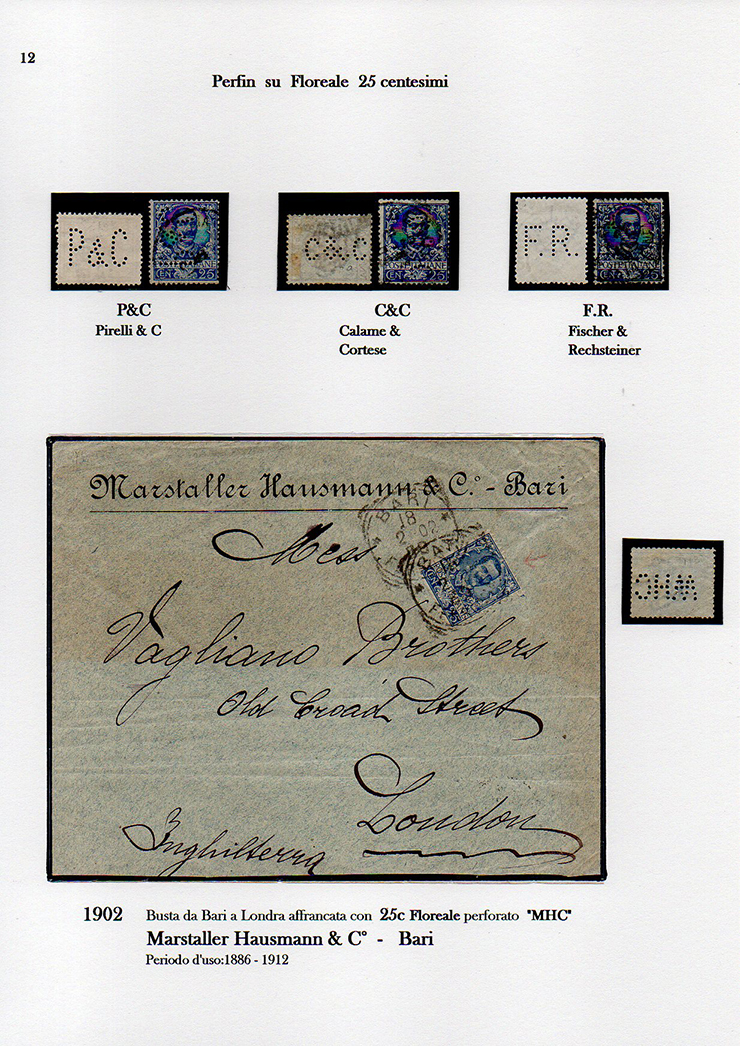 12
Perfin su Floreale 25 centesimi
P&C
POSTE ITALIANE
CEN 25
C&C
POSTE ITALIANE
CEN 25
F.R.
POSTE ITALIANE
CEN 25
P&C
Pirelli & C
C&C
Calame &
Cortese
F.R.
Fischer &
Rechsteiner
Marstaller Hausmann & C.° - Bari
BARI
18
2 02
BARI
Mess
Vagliano Brothers
Old Croad Street
London
Inghilterra
MHC
1902 Busta da Bari a Londra affrancata con 25c Floreale perforato "MHC"
Marstaller Hausmann & C° - Bari
Periodo d'uso:1886 - 1912